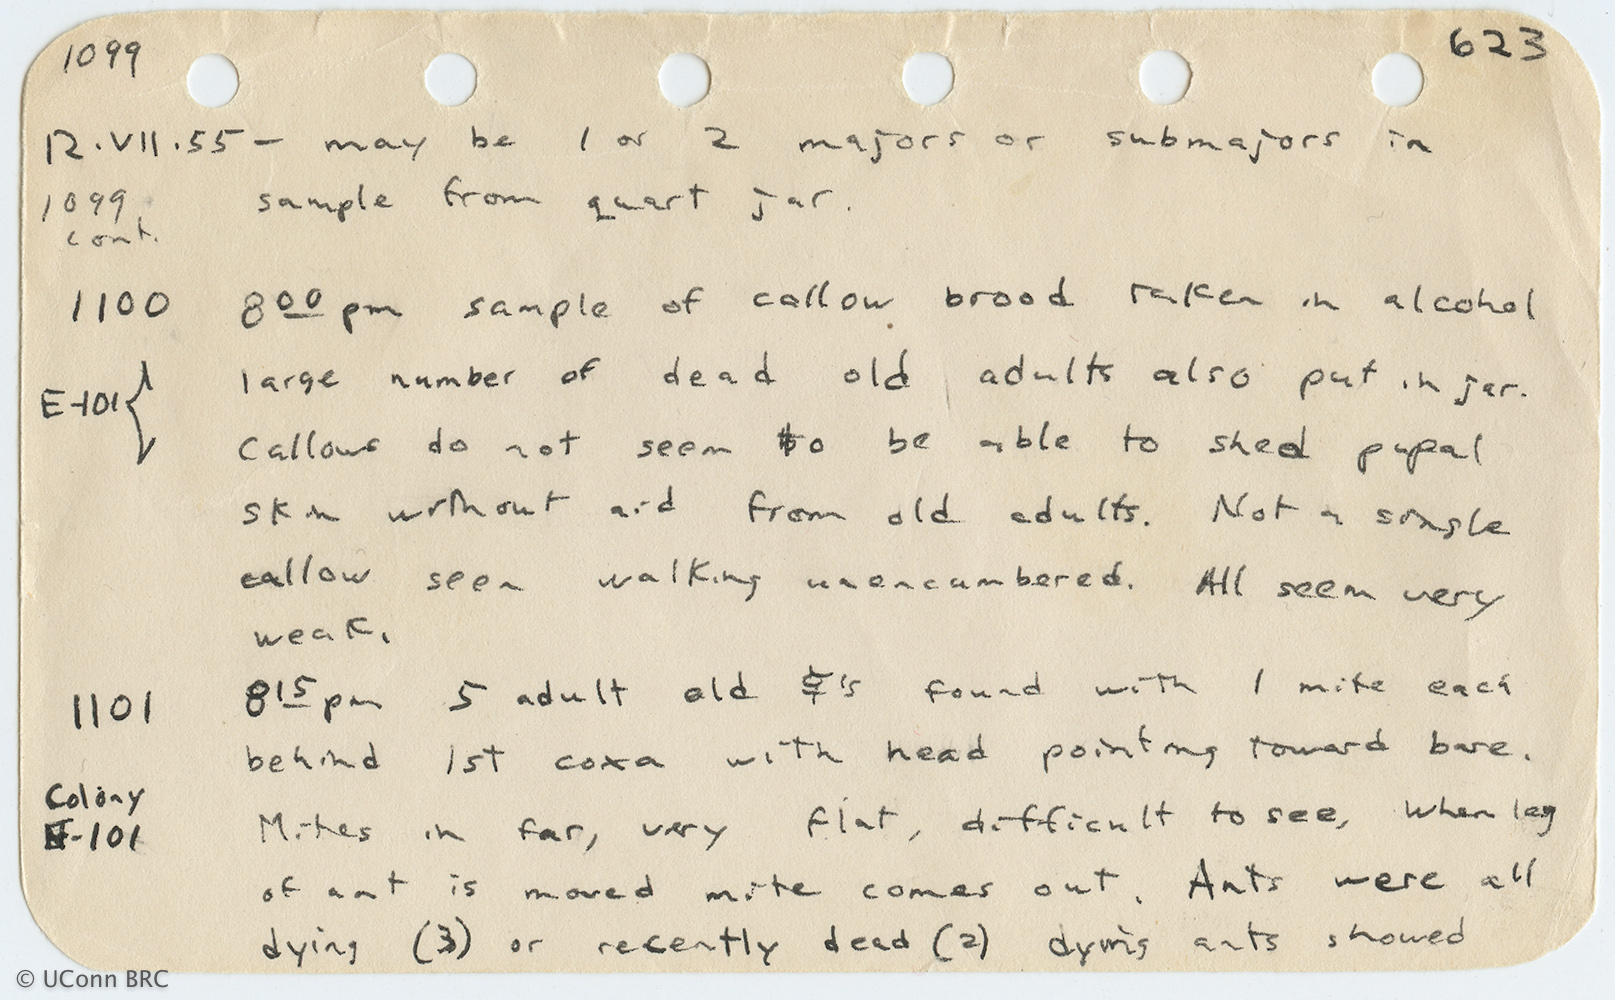 1099 623
12.VII.55 – may be 1 or 2 majors or submajors in
1099 cont. sample from quart jar.
1100 8⁰⁰ pm sample of callow brood taken in alcohol
large number of dead old adults also put in jar.
E-101 { Callows do not seem to be able to shed pupal
skin without aid from old adults. Not a single
callow seen walking unencumbered. All seem very
weak.
1101 8¹⁵ pm 5 adult old ☿'s found with 1 mite each
behind 1st coxa with head pointing toward base.
Colony
E-101 Mites in far, very flat, difficult to see, when leg
of ant is moved mite comes out. Ants were all
dying (3) or recently dead (2) dying ants showed
© UConn BRC